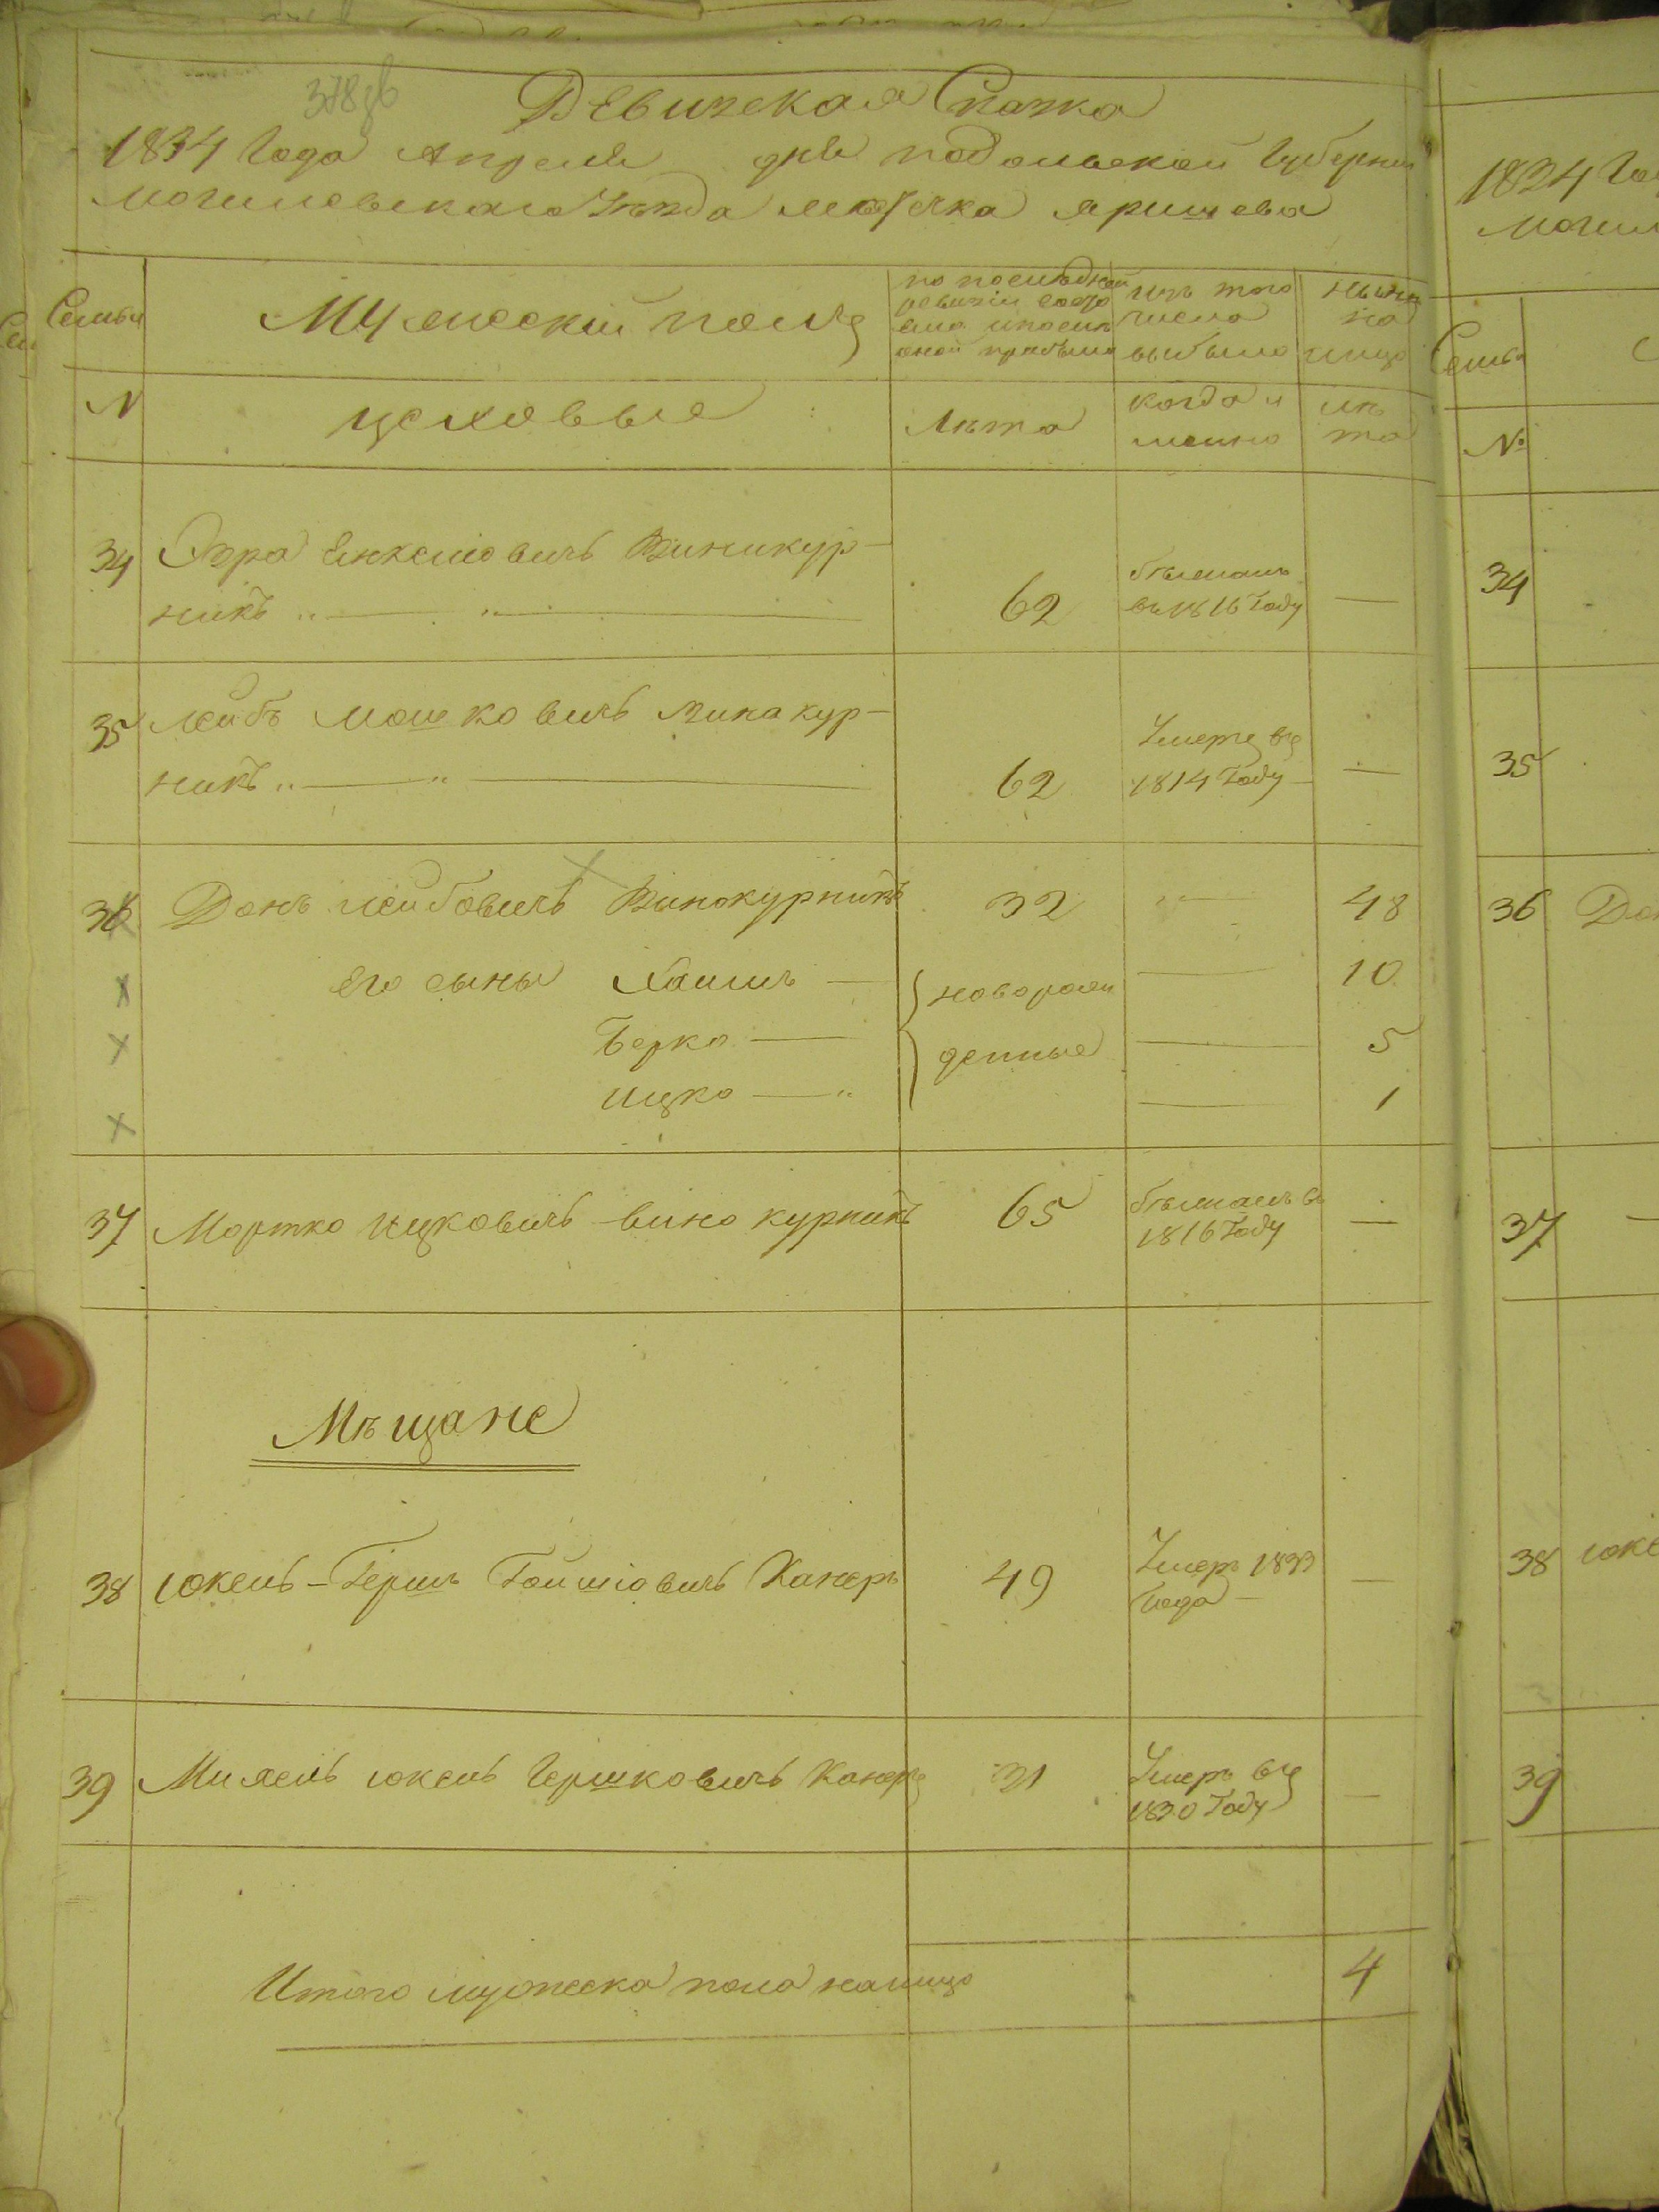 378зв
Ревижская Скаска
1834 Года Апреля дня подольской Губернии
могиловскаго Уезда местечка яришева
Семьи
Мужеский полъ
по последней
ревизии состо
яло и после
оной прибыло
изъ того
числа
выбыло
ныне
на
лицо
N
цеховые
Лета
когда и
менно
ле
та
34 Эзра Енкелiовичъ Виникур-
никъ
62
бежалъ
въ 1816 Году
—
35 Лейбъ мошковичъ винакур-
никъ
62
Умеръ въ
1814 Году
—
36 Донъ лейбовичъ Винокурникъ 32 — 48
его сыны Хаимъ — новорож — 10
Берко — денные — 5
ицко — — 1
37 Мортко ицковичъ винокурникъ 65
бежалъ въ
1816 Году
—
Мещане
38 юкель-Гершъ Канеръ 49
Умеръ 1833
Года
—
39 Михель юкель Гершковичъ Канеръ 31
Умеръ въ
1830 Году
—
Итого мужеска пола налицо 4
1834 Го
могил
Семьи
№
34
35
36 До
37
38 юке
39